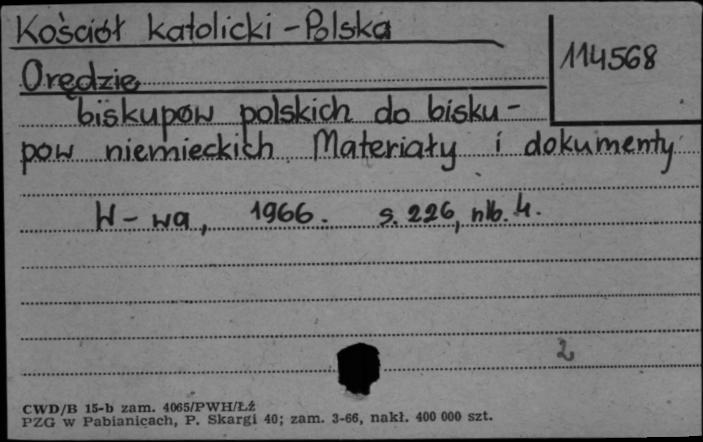 Kościół katolicki - Polska
114568
Orędzie
biskupów polskich do bisku-
pów niemieckich. Materiały i dokumenty
W-wa, 1966. s. 226, nlb. 4.
2
CWD/B 15-b zam. 4065/PWH/Łź
PZG w Pabianicach, P. Skargi 40; zam. 3-66, nakł. 400 000 szt.